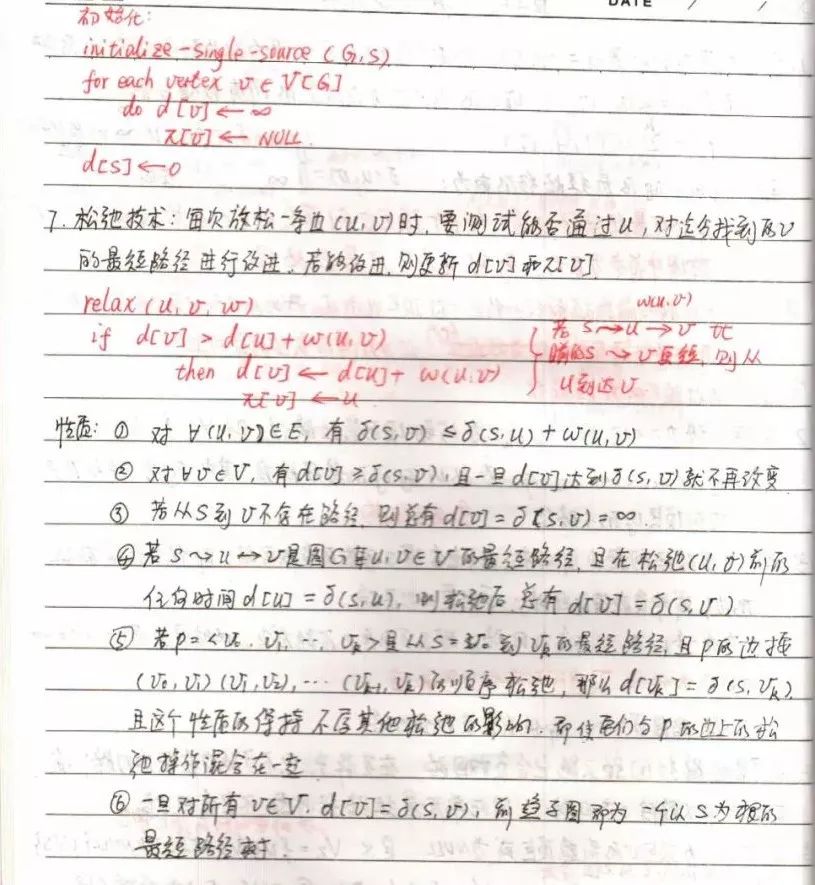 DATE / /
初始化:
initialize-single-source (G,S)
for each vertex v ∈ V[G]
do d[v] ← ∞
π[v] ← NULL.
d[S] ← 0
7. 松弛技术: 每次放松一条边(u,v)时, 要测试能否通过u, 对迄今找到的v
的最短路径进行改进. 若能改进, 则更新 d[v] 和 π[v].
relax (u, v, w)
if d[v] > d[u] + w(u,v)
then d[v] ← d[u] + w(u,v)
π[v] ← u
w(u,v)
若 S⤳u → v 比
S ⤳ v 更短, 则从
u到达v
性质: ① 对 ∀(u,v)∈E, 有 δ(s,v) ≤ δ(s,u) + w(u,v)
② 对∀v∈V, 有d[v] ≥ δ(s,v), 且一旦d[v]达到δ(s,v)就不再改变
③ 若从S到v不存在路径, 则总有d[v] = δ(s,v) = ∞
④ 若 S ⤳ u → v是图G某u,v∈V的最短路径, 且在松弛(u,v)前的
任何时间d[u] = δ(s,u), 则松弛后总有d[v] = δ(s,v)
⑤ 若p = <v₀, v₁, ... vₖ>是从S = v₀到vₖ的最短路径, 且p的边按
(v₀,v₁) (v₁,v₂), ... (vₖ₋₁,vₖ)的顺序松弛, 那么d[vₖ] = δ(s,vₖ)
且这个性质的保持不受其他松弛的影响. 即使它们与p的边上的松
弛操作混合在一起
⑥ 一旦对所有v∈V, d[v] = δ(s,v), 前趋子图即为一个以S为根的
最短路径树.